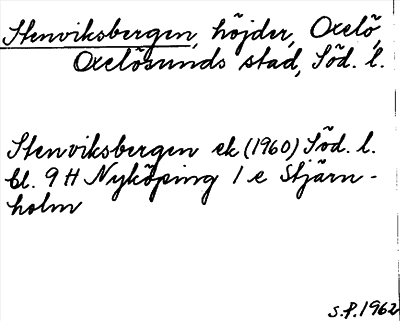 Stenviksbergen, höjder, Oxelö,
Oxelösunds stad, Söd. l.
Stenviksbergen ek (1960) Söd. l.
bl. 9 H Nyköping 1 e Stjärn-
holm
S.P. 1962